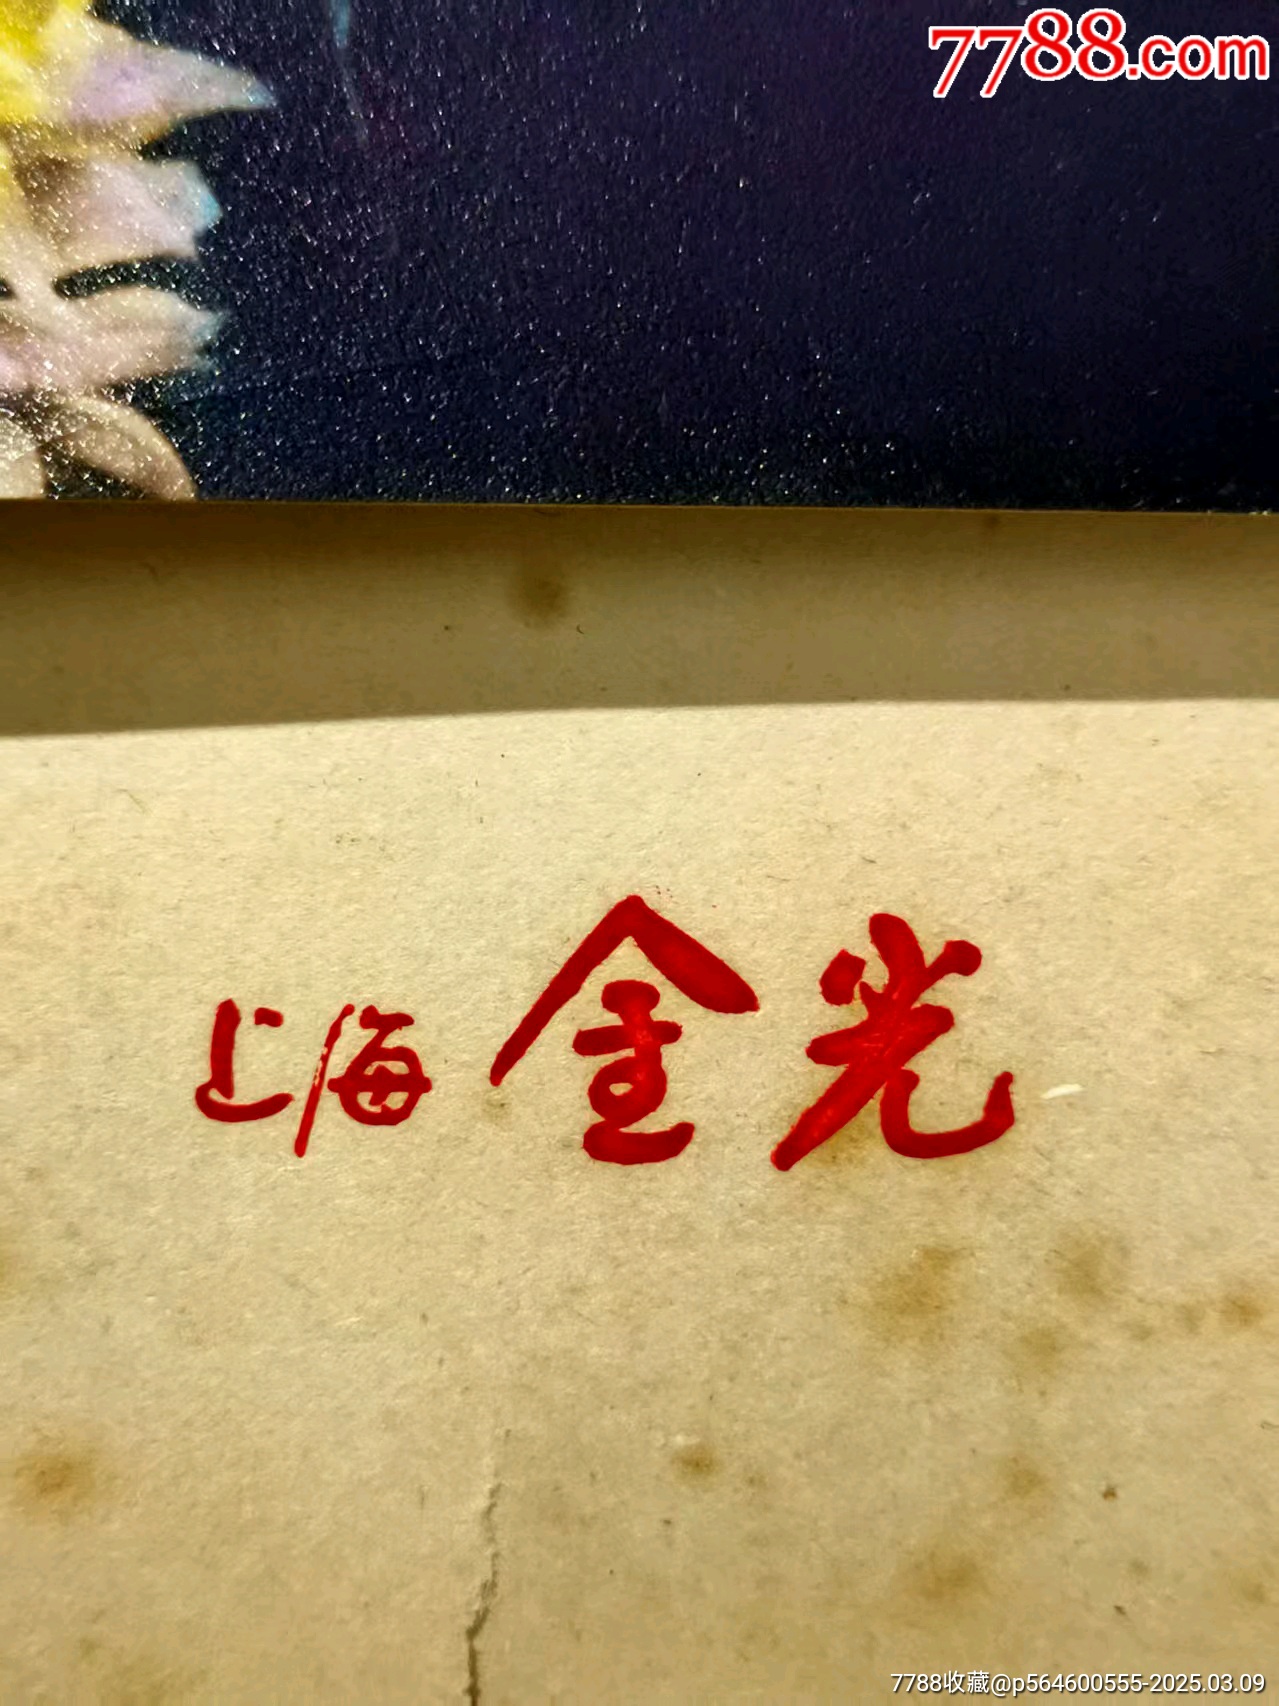 7788.com
上海 金光
7788收藏@p564600555-2025.03.09